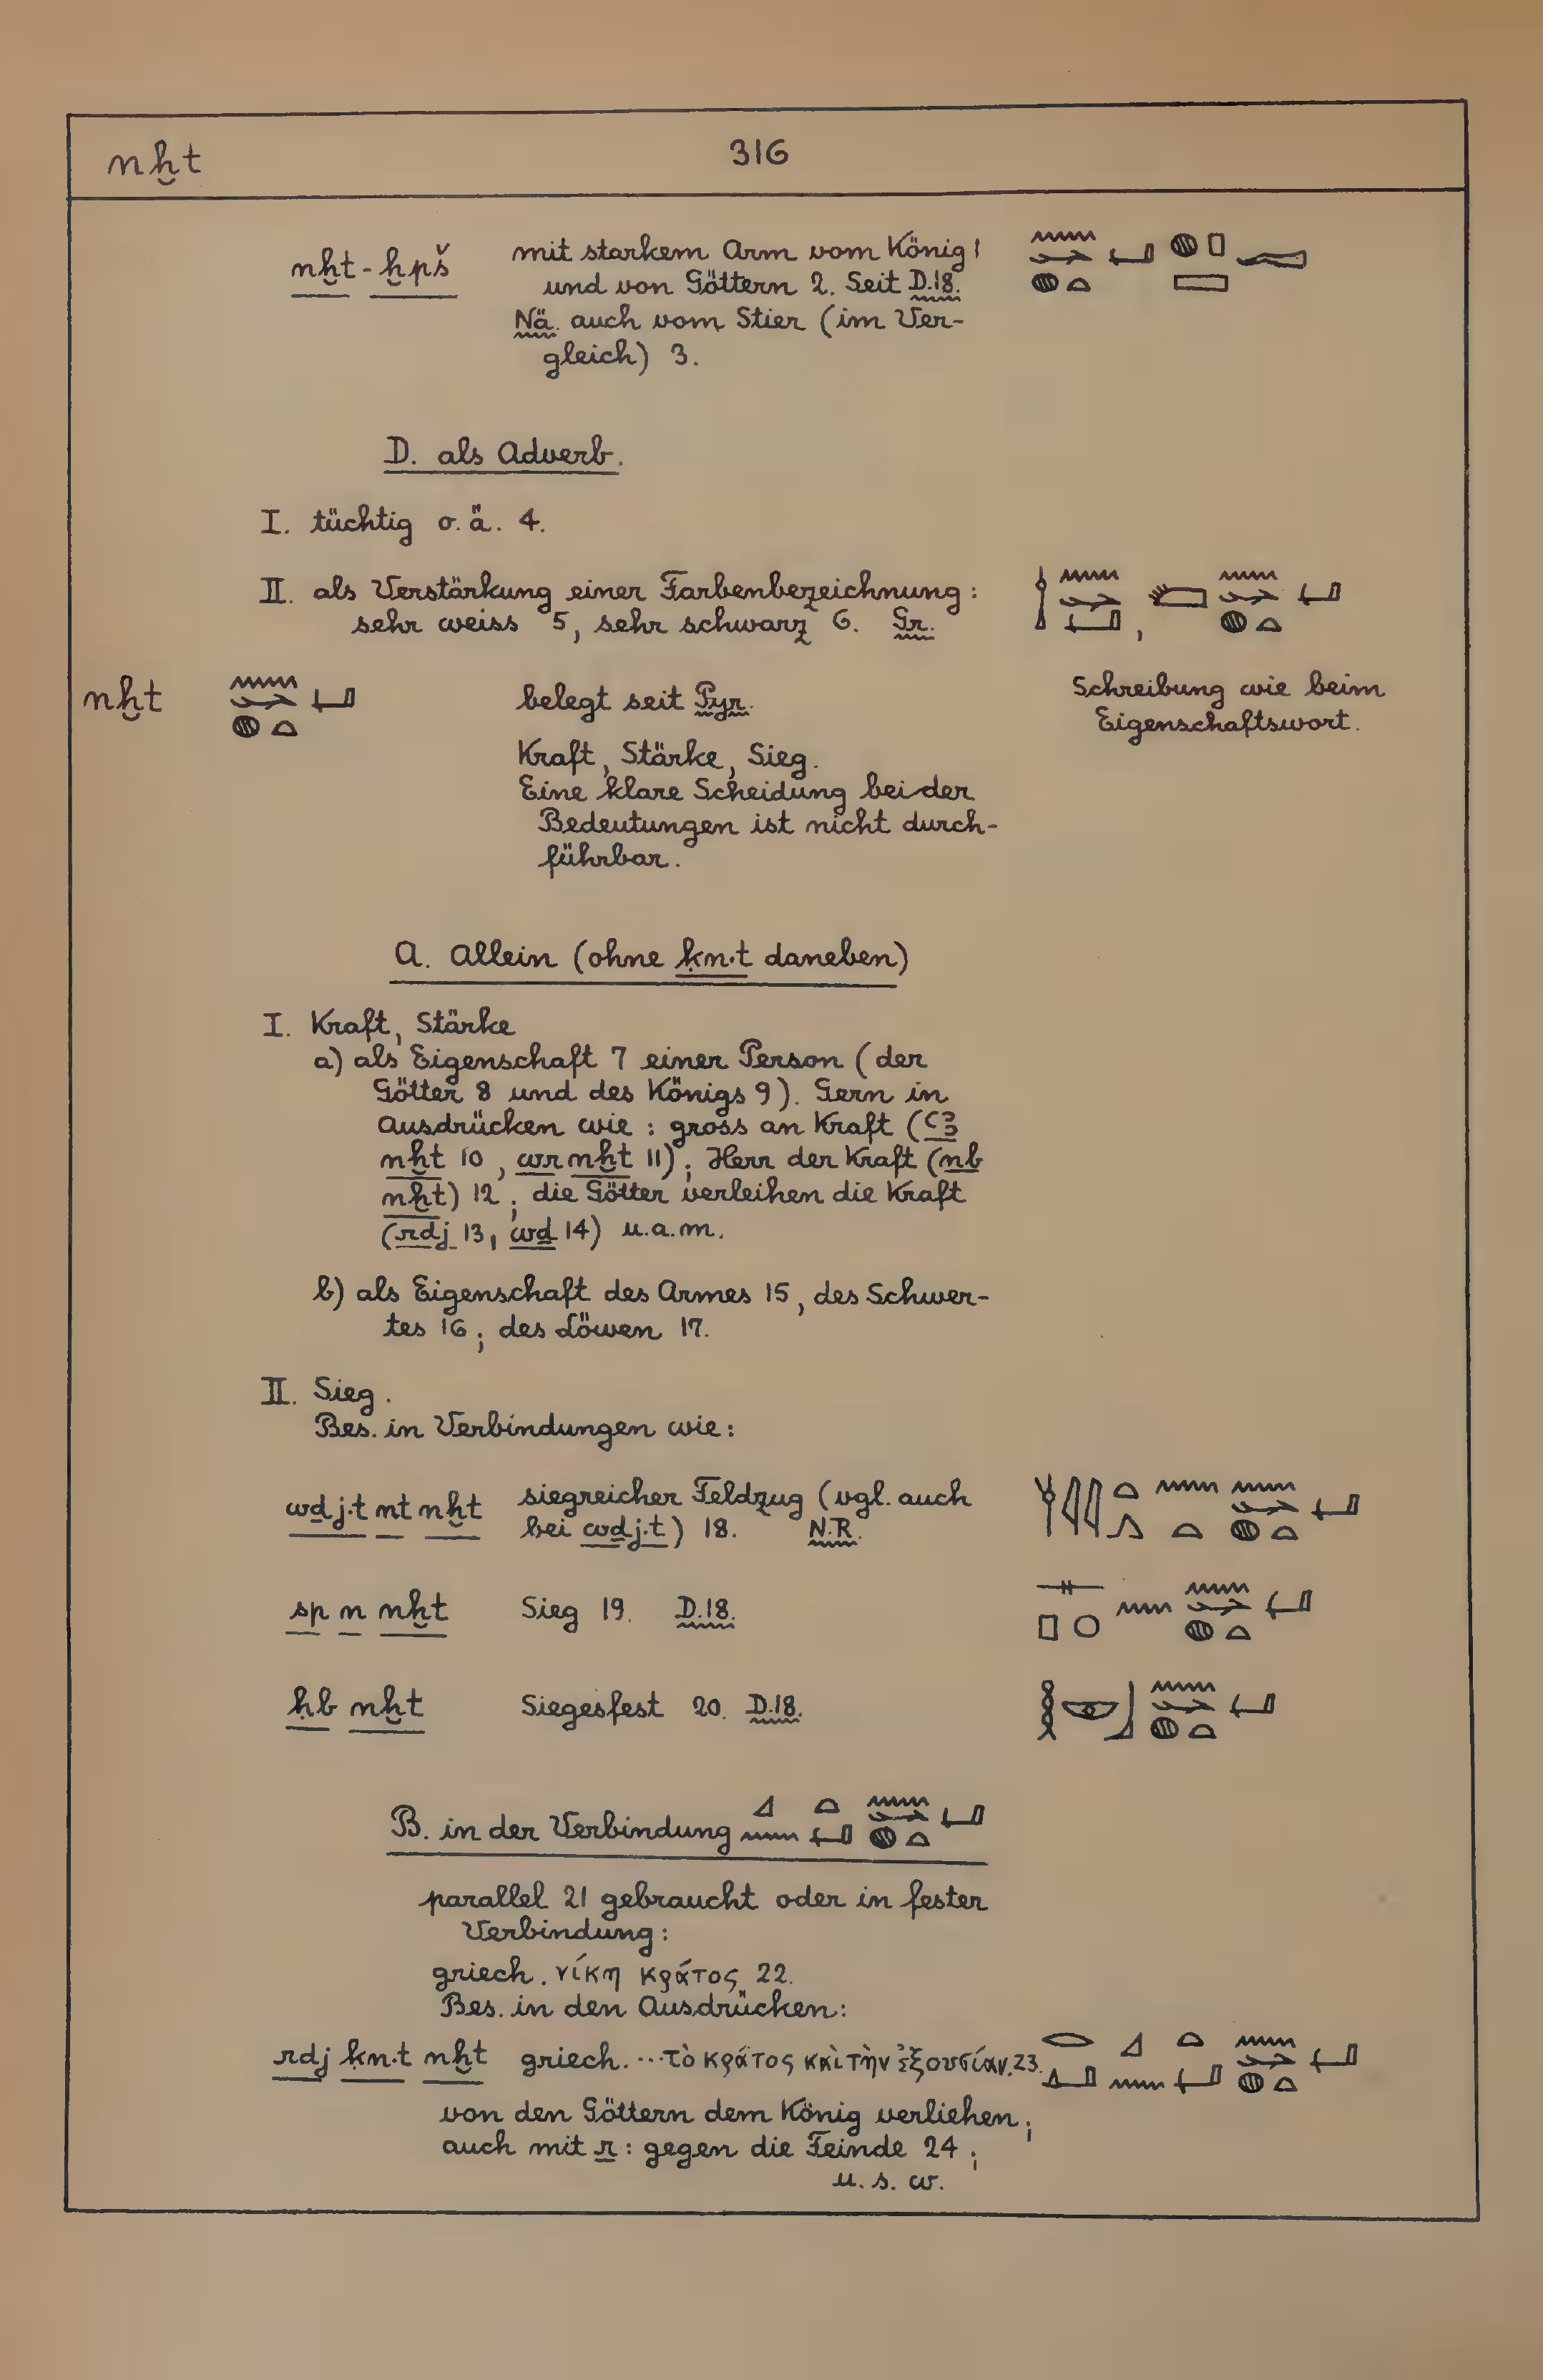 nḫt 316
nḫt-ḫpš mit starkem Arm vom König 1
und von Göttern 2. Seit D.18.
Nä. auch vom Stier (im Ver-
gleich) 3.
D. als Adverb.
I. tüchtig o.ä. 4.
II. als Verstärkung einer Farbenbezeichnung:
sehr weiss 5, sehr schwarz 6. Gr.
nḫt belegt seit Pyr. Schreibung wie beim
Eigenschaftswort.
Kraft, Stärke, Sieg.
Eine klare Scheidung beider
Bedeutungen ist nicht durch-
führbar.
A. Allein (ohne ḳn.t daneben)
I. Kraft, Stärke
a) als Eigenschaft 7 einer Person (der
Götter 8 und des Königs 9). Gern in
Ausdrücken wie: gross an Kraft (ꜥꜣ
nḫt 10, wr nḫt 11); Herr der Kraft (nb
nḫt) 12; die Götter verleihen die Kraft
(rdj 13, wḏ 14) u.a.m.
b) als Eigenschaft des Armes 15, des Schwer-
tes 16; des Löwen 17.
II. Sieg.
Bes. in Verbindungen wie:
wḏj.t nt nḫt siegreicher Feldzug (vgl. auch
bei wḏj.t) 18. N.R.
sp n nḫt Sieg 19. D.18.
ḥb nḫt Siegesfest 20. D.18.
B. in der Verbindung
parallel 21 gebraucht oder in fester
Verbindung:
griech. νίκη κράτος 22.
Bes. in den Ausdrücken:
rdj ḳn.t nḫt griech. ...τὸ κράτος καὶ τὴν ἐξουσίαν. 23.
von den Göttern dem König verliehen;
auch mit r: gegen die Feinde 24;
u. s. w.